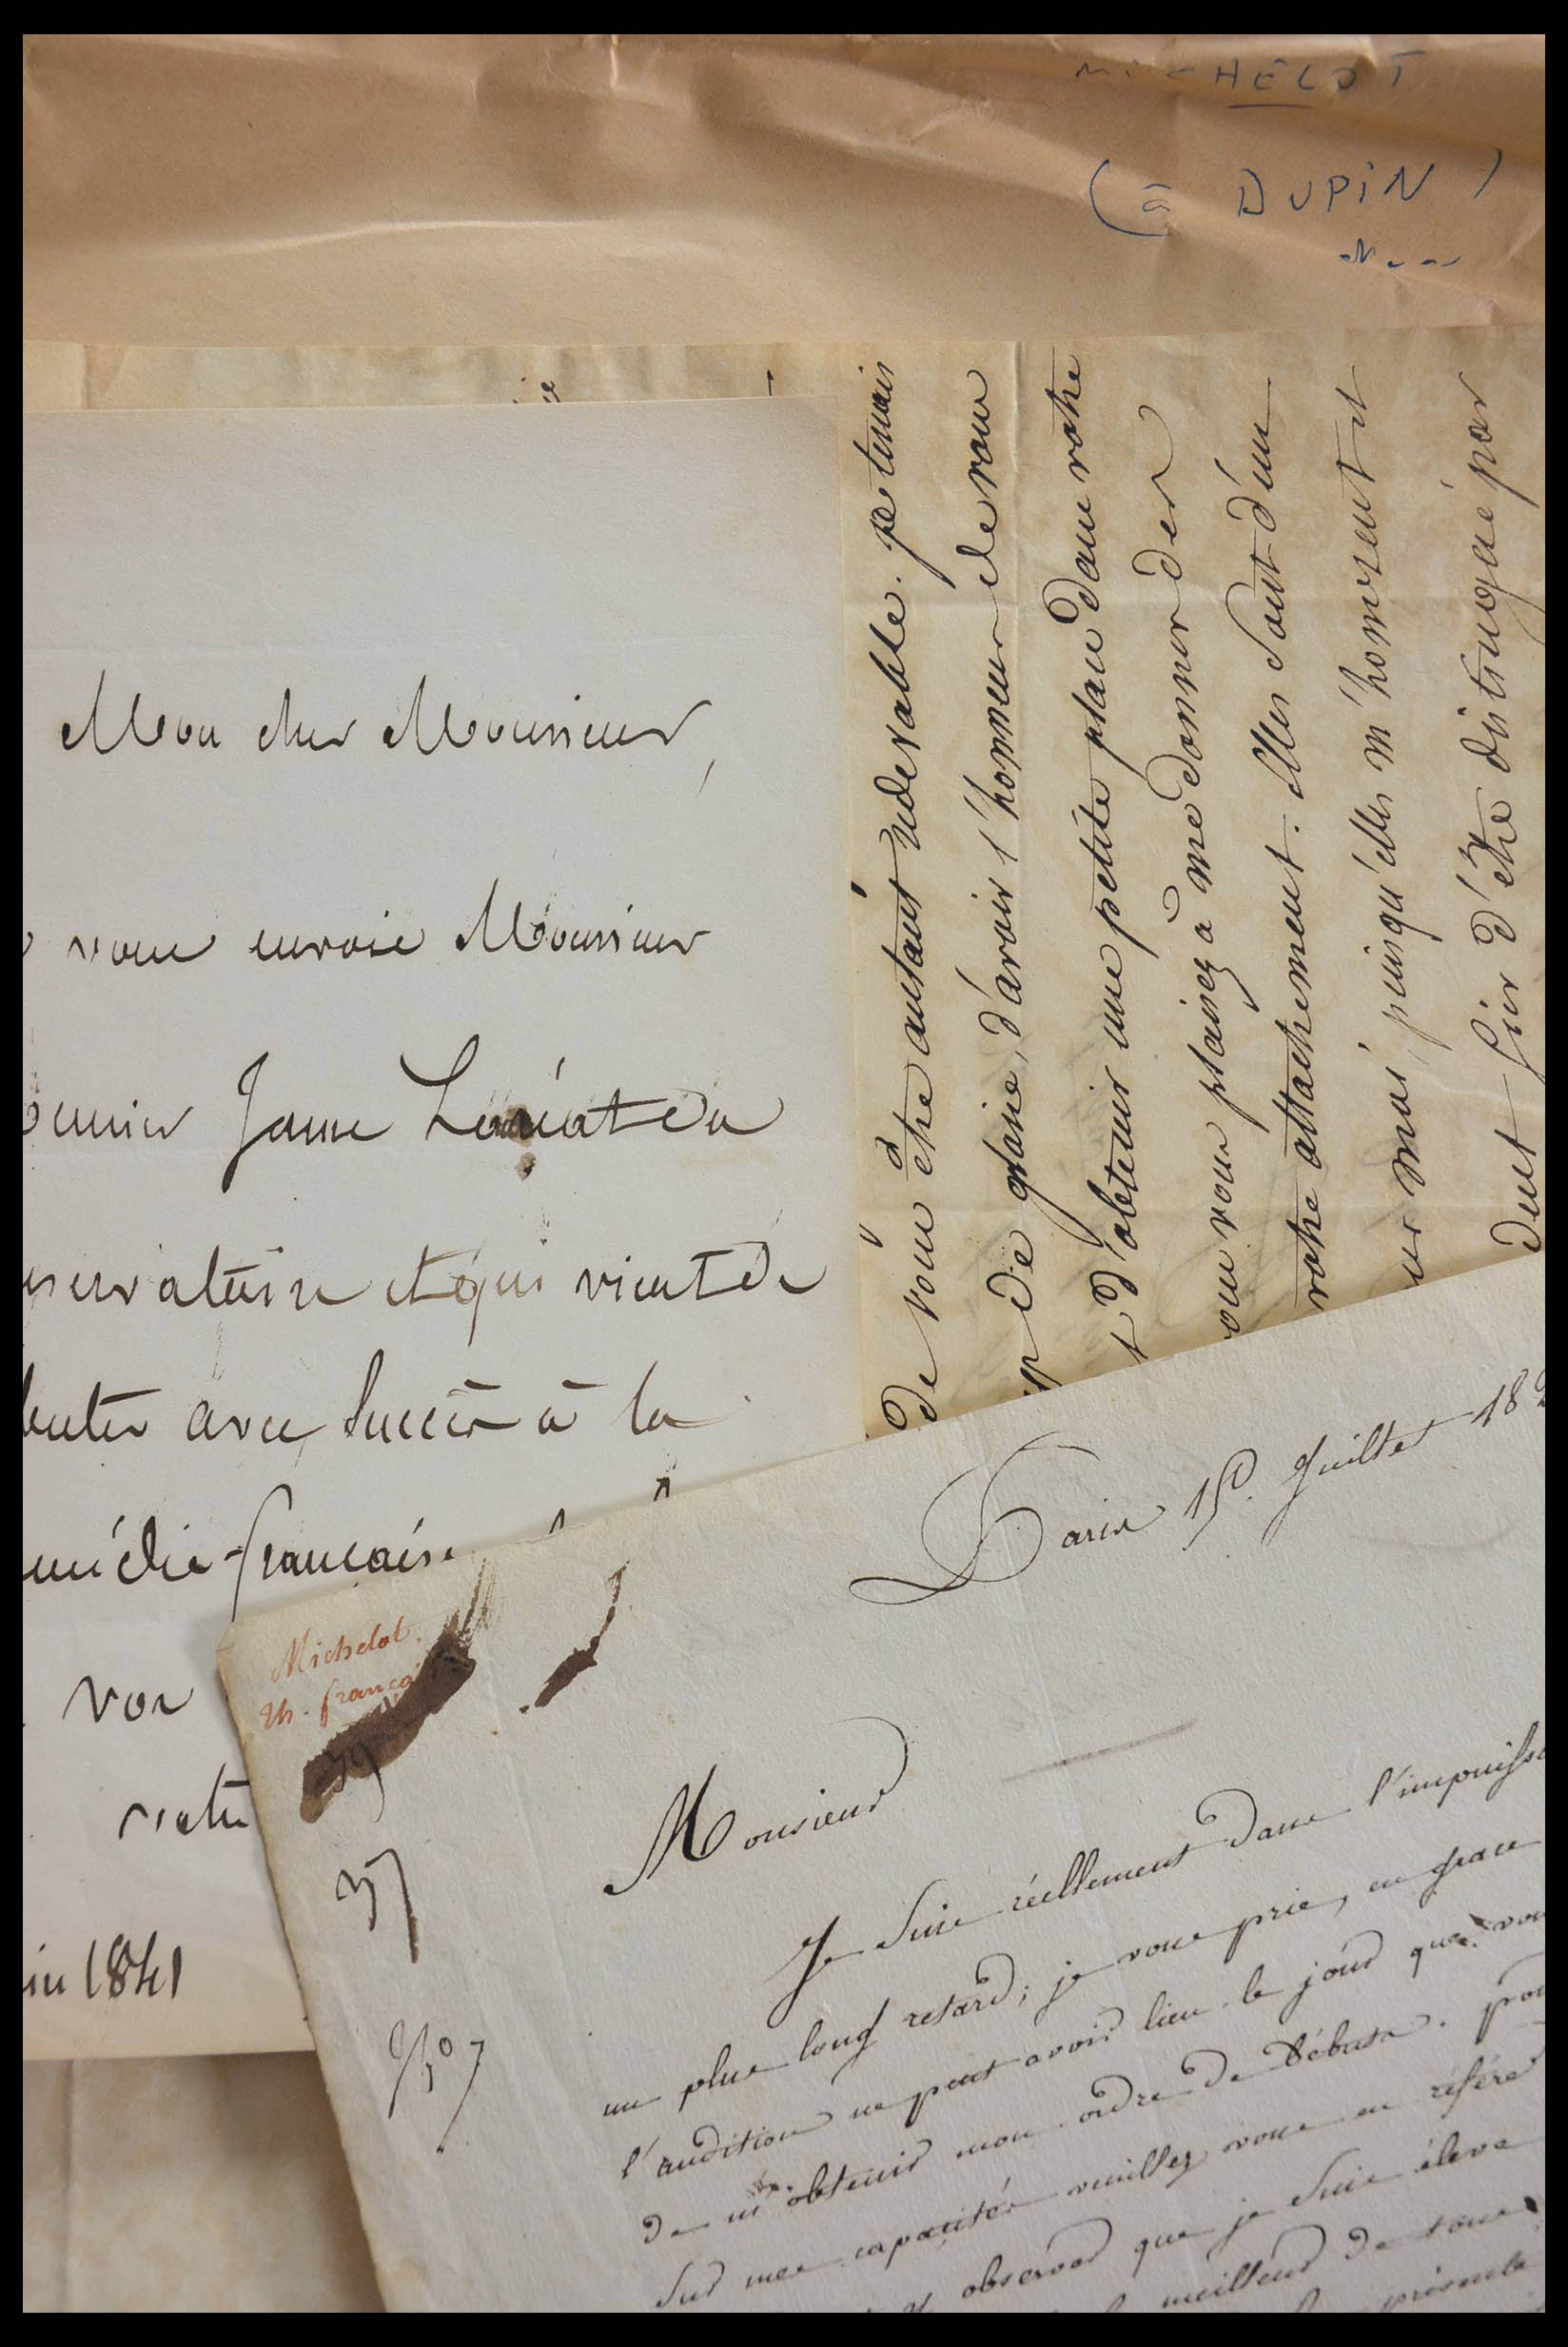 MICHELOT
(à DUPIN)
Mon cher Monsieur,
vous envoie Monsieur
Jame Lauréat du
et qui vient de
avec succès à la
française
vos
in 1841
de vous être autant redevable. je tenais
de gloire, d'avoir l'honneur de vous
d'obtenir une petite place dans votre
vous plaisez à me donner des
votre attachement. Elles sont d'un
moi, puisqu'elles m'honorent et
fier d'être distingué par
Michelot
th. françai
39
37
Paris 15 Juillet 182
Monsieur
Je suis réellement dans l'impuissa
un plus long retard; je vous prie, en grace
l'audition ne peut avoir lieu le jour que vou
de m'obtenir mon ordre de débuts. pou
sur mes capacités veuillez vous en référer
observer que je suis élève
meilleur de tous
présente